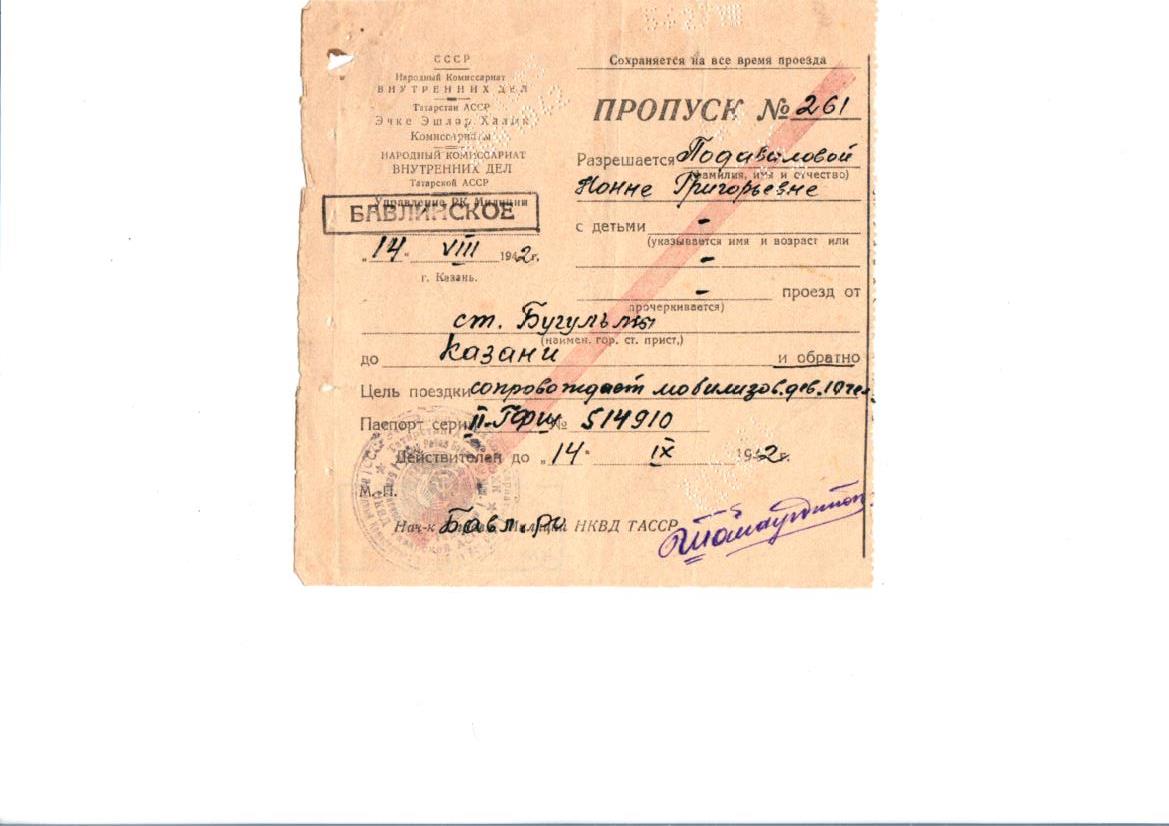 СССР
Народный Комиссариат
ВНУТРЕННИХ ДЕЛ
Татарстан АССР
Эчке Эшлэр Халык
Комиссариаты
НАРОДНЫЙ КОМИССАРИАТ
ВНУТРЕННИХ ДЕЛ
Татарской АССР
Управление РК Милиции
БАВЛИНСКОЕ
„14“ VIII 1942г.
г. Казань.
Сохраняется на все время проезда
ПРОПУСК № 261
Разрешается Подаваловой
(фамилия, имя и отчество)
Нонне Григорьевне
с детьми -
(указывается имя и возраст или
-
- проезд от
прочеркивается)
ст. Бугульмы
(наимен. гор. ст. прист.)
до Казани и обратно
Цель поездки сопровождает мобилизов. дев. 10 чел.
Паспорт серии № 514910
Действителен до „14“ IX 1942г.
М. П.
Нач-к Бавл. РО Милиции НКВД ТАССР